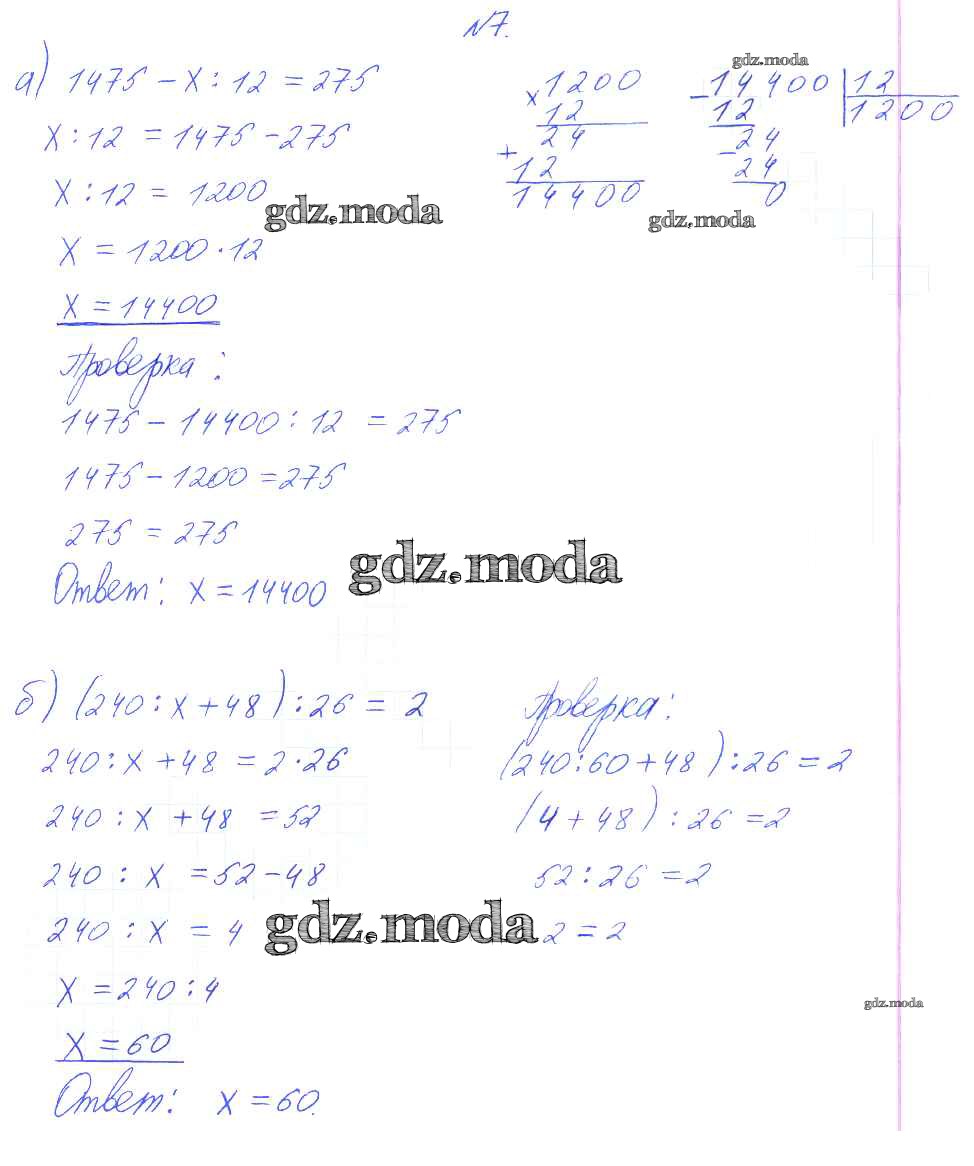 №7.
а) 1475 - х : 12 = 275
х : 12 = 1475 - 275
х : 12 = 1200
х = 1200 · 12
х = 14400
Проверка :
1475 - 14400 : 12 = 275
1475 - 1200 = 275
275 = 275
Ответ: х = 14400
× 1200
12
+ 24
12
14400
gdz.moda
- 14400 | 12
12 1200
- 24
24
0
gdz.moda
gdz.moda
gdz.moda
б) (240 : х + 48) : 26 = 2
240 : х + 48 = 2 · 26
240 : х + 48 = 52
240 : х = 52 - 48
240 : х = 4
х = 240 : 4
х = 60
Ответ: х = 60.
Проверка:
(240 : 60 + 48) : 26 = 2
(4 + 48) : 26 = 2
52 : 26 = 2
2 = 2
gdz.moda
gdz.moda